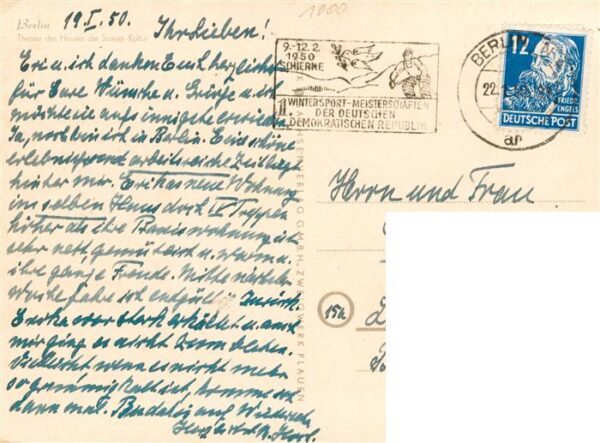 Berlin
Theater des Hauses der Sowjet-Kultur
19.I.50. Ihr Lieben!
Eri u. ich danken Euch herzlichst
für Eure Wünsche u. Grüße u. ich
möchte sie aufs innigste erwidern
Ja, noch bin ich in Berlin. Eine schöne
erlebnis arbeitsreiche Zeit liegt
hinter mir. Erikas neue Wohnung
im selben Haus doch IV Treppen
höher als ihre Praxiswohnung ist
sehr nett, gemütlich u. warm u.
ihre ganze Freude. Mitte nächster
Woche fahre ich endgültig zurück.
Erika war stark erkältet u. auch
mir ging es nicht besten.
Vielleicht wenn es nicht mehr
so kalt ist, komme ich
dann mal. Baldig auf Wiedersehn
Herzlichst
1000
9.-12.2.
1950
SCHIERKE
1. WINTERSPORT-MEISTERSCHAFTEN
DER DEUTSCHEN
DEMOKRATISCHEN REPUBLIK
BERLIN
22.
ar
12
FRIEDR.
ENGELS
DEUTSCHE POST
VERLAG G.M.B.H., ZWEIGWERK PLAUEN
Herrn und Frau
15a